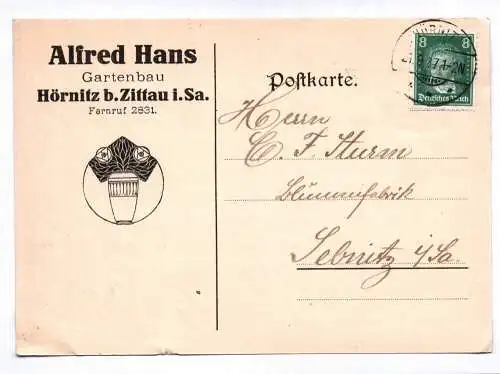 Alfred Hans
Gartenbau
Hörnitz b. Zittau i. Sa.
Fernruf 2831.
Postkarte.
8 8
Deutsches Reich
Herrn
C. F. Sturm
Blumenfabrik
Sebnitz i/Sa.